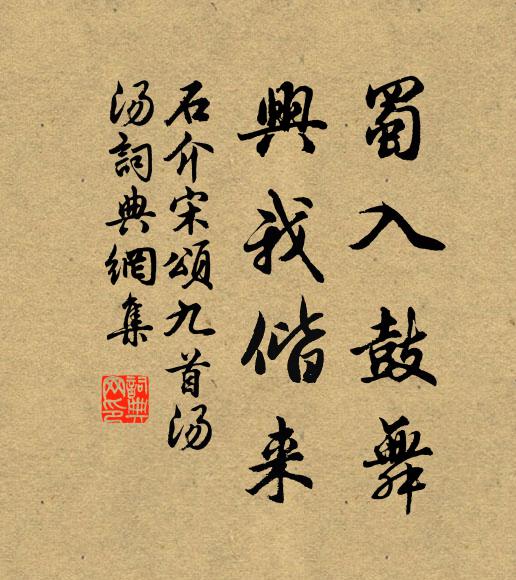 蜀入鼓舞
興我偕来
石介宋頌九首汤
汤詞典網集
詞典
网印